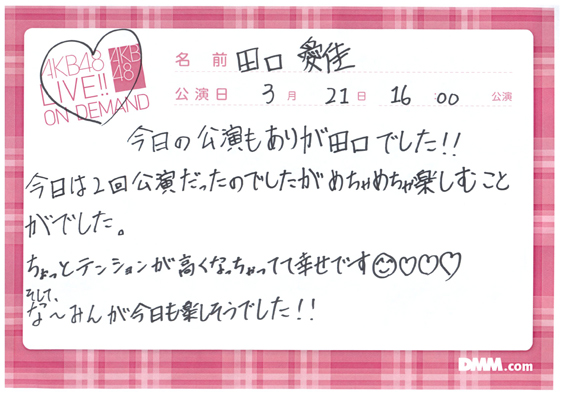 AKB48
LIVE!!
ON DEMAND
AKB
48
名前 田口 愛佳
公演日 3月 21日 16:00 公演
今日の公演もありが田口でした!!
今日は2回公演だったのでしたがめちゃめちゃ楽しむこと
がでした。
ちょっとテンションが高くなっちゃってて幸せです😊♡♡♡
そして、
な〜みんが今日も楽しそうでした!!
DMM.com